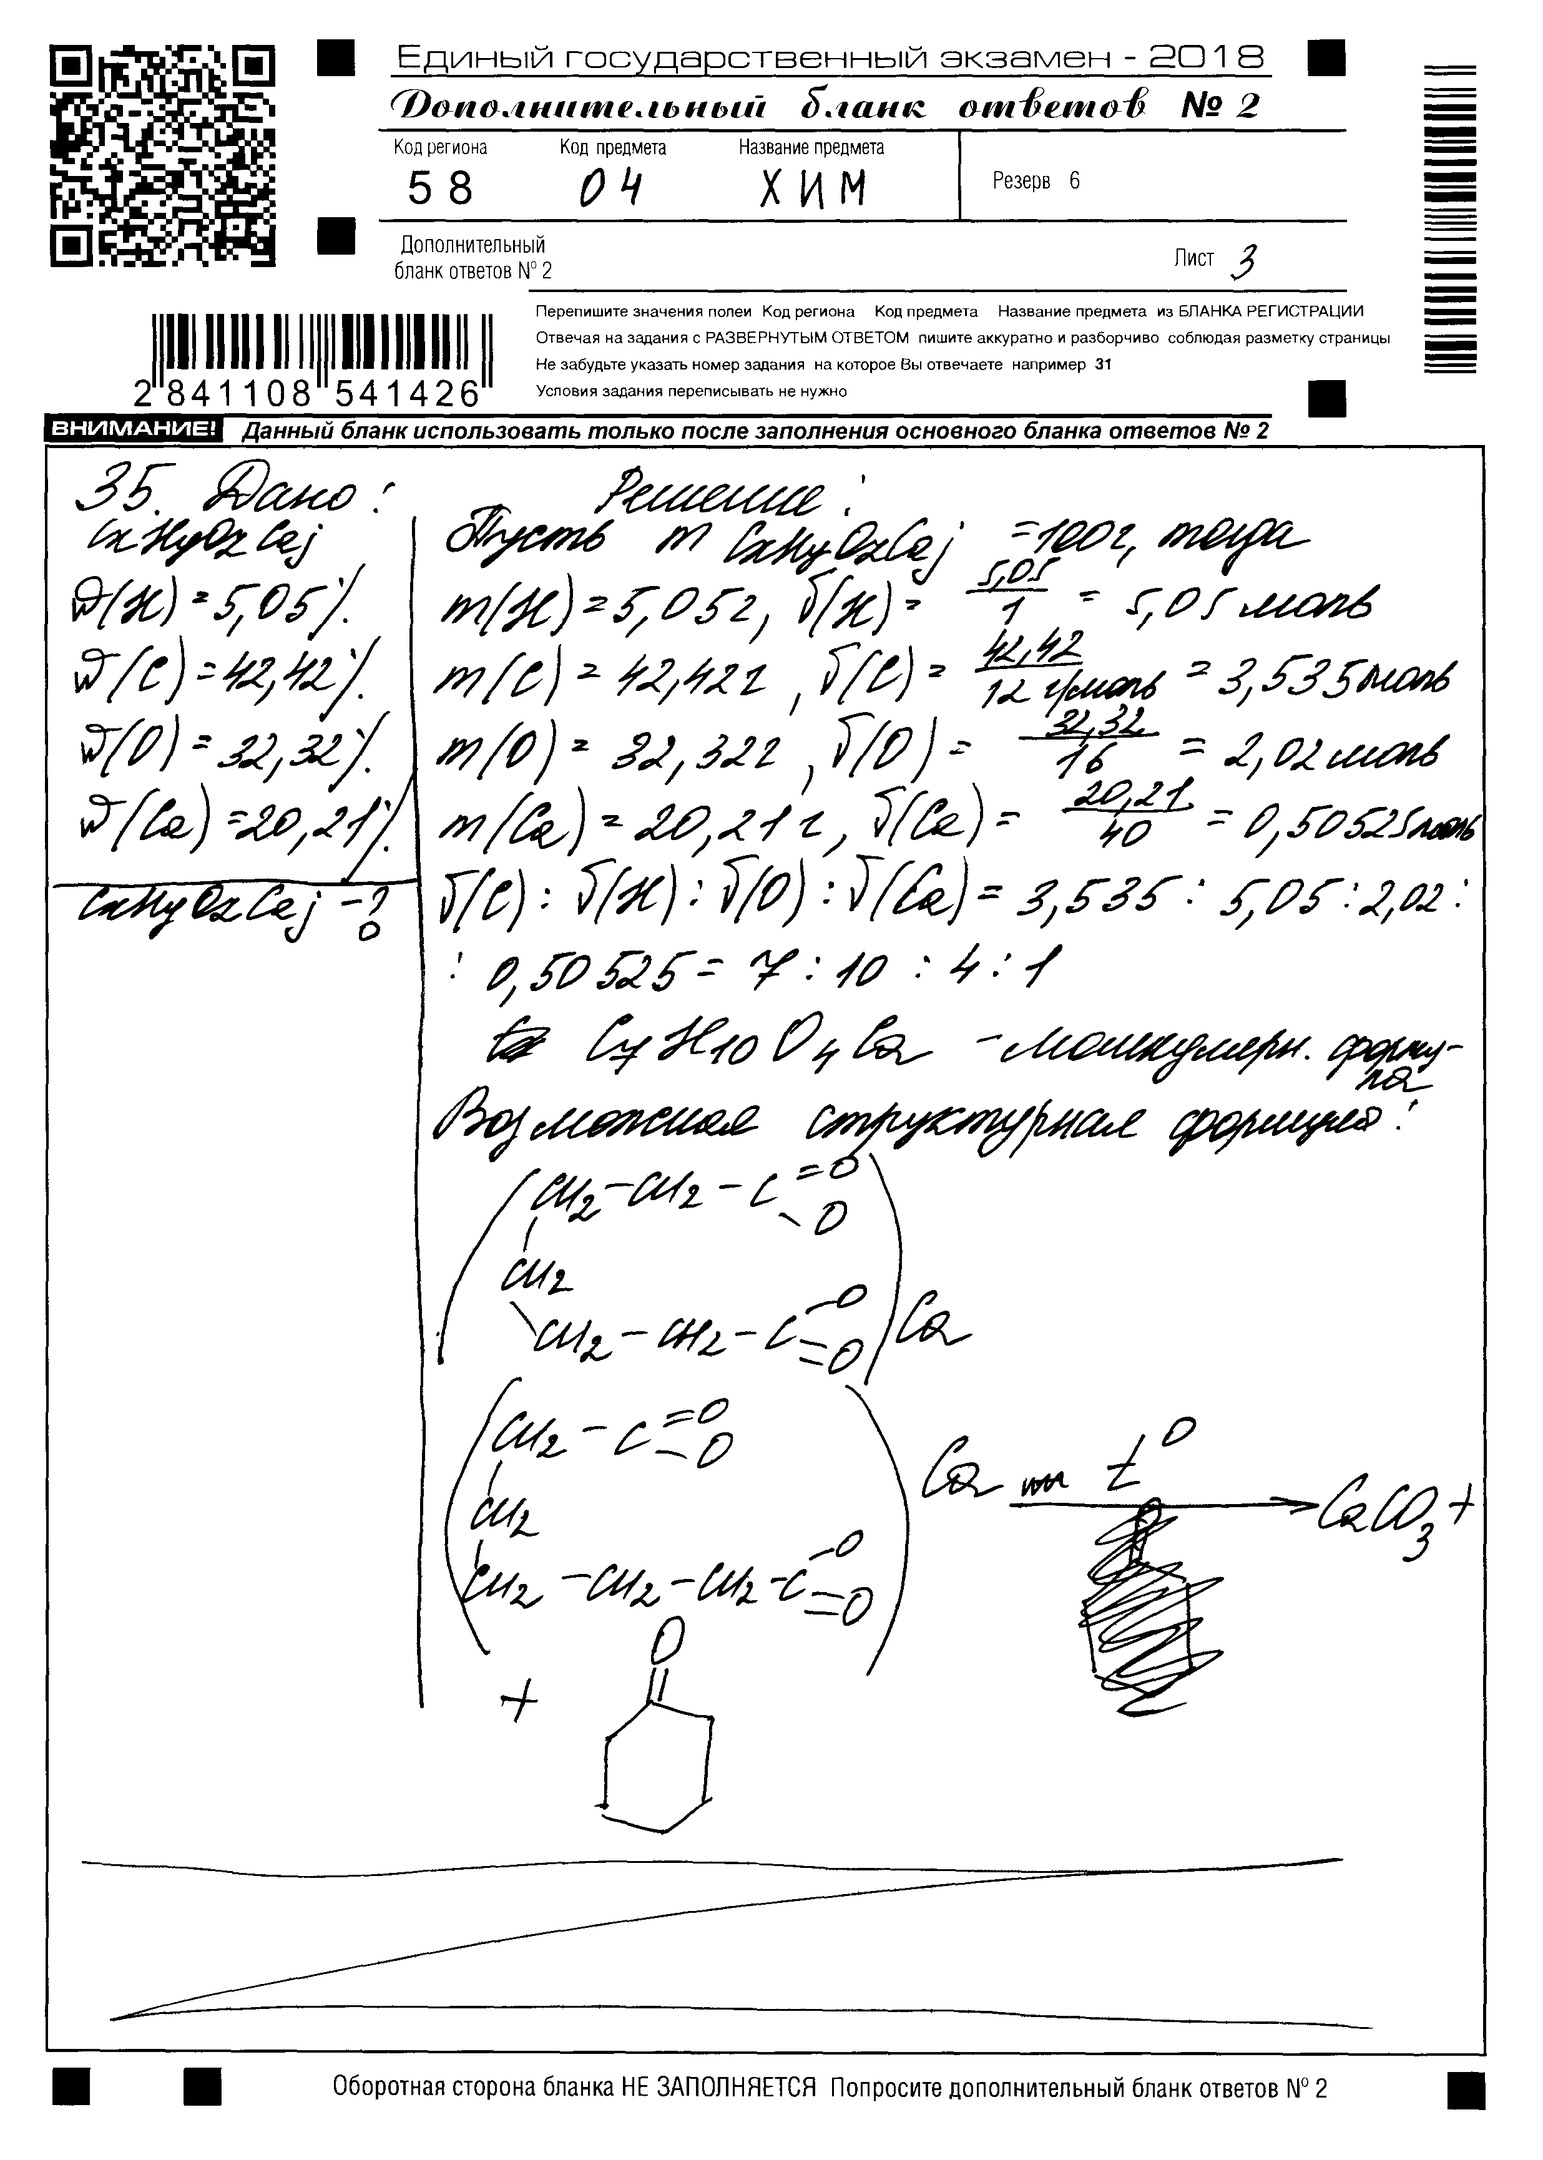 Единый государственный экзамен - 2018
Дополнительный бланк ответов № 2
Код региона Код предмета Название предмета
58 04 ХИМ
Резерв 6
Дополнительный
бланк ответов № 2
Лист 3
Перепишите значения полей Код региона Код предмета Название предмета из БЛАНКА РЕГИСТРАЦИИ
Отвечая на задания с РАЗВЕРНУТЫМ ОТВЕТОМ пишите аккуратно и разборчиво соблюдая разметку страницы
Не забудьте указать номер задания на которое Вы отвечаете например 31
Условия задания переписывать не нужно
2 841108 541426
ВНИМАНИЕ! Данный бланк использовать только после заполнения основного бланка ответов № 2
35. Дано:
CxHyOzCaj
ω(H) = 5,05%
ω(C) = 42,42%.
ω(O) = 32,32%.
ω(Ca) = 20,21%.
CxHyOzCaj - ?
Решение:
Пусть m CxHyOzCaj = 100г, тогда
m(H) = 5,05г, ν(H) = 5,05/1 = 5,05 моль
m(C) = 42,42г, ν(C) = 42,42/12 г/моль = 3,535 моль
m(O) = 32,32г, ν(O) = 32,32/16 = 2,02 моль
m(Ca) = 20,21г, ν(Ca) = 20,21/40 = 0,50525 моль
ν(C) : ν(H) : ν(O) : ν(Ca) = 3,535 : 5,05 : 2,02 :
: 0,50525 = 7 : 10 : 4 : 1
C7H10O4Ca - молекулярн. форму-
ла
Возможная структурная формула:
CH2-CH2-C=O
-O
CH2
CH2-CH2-C-O
=O
Ca
CH2-C=O
-O
CH2
CH2-CH2-CH2-C-O
=O
Ca t° → CaCO3 +
+
O
Оборотная сторона бланка НЕ ЗАПОЛНЯЕТСЯ Попросите дополнительный бланк ответов № 2